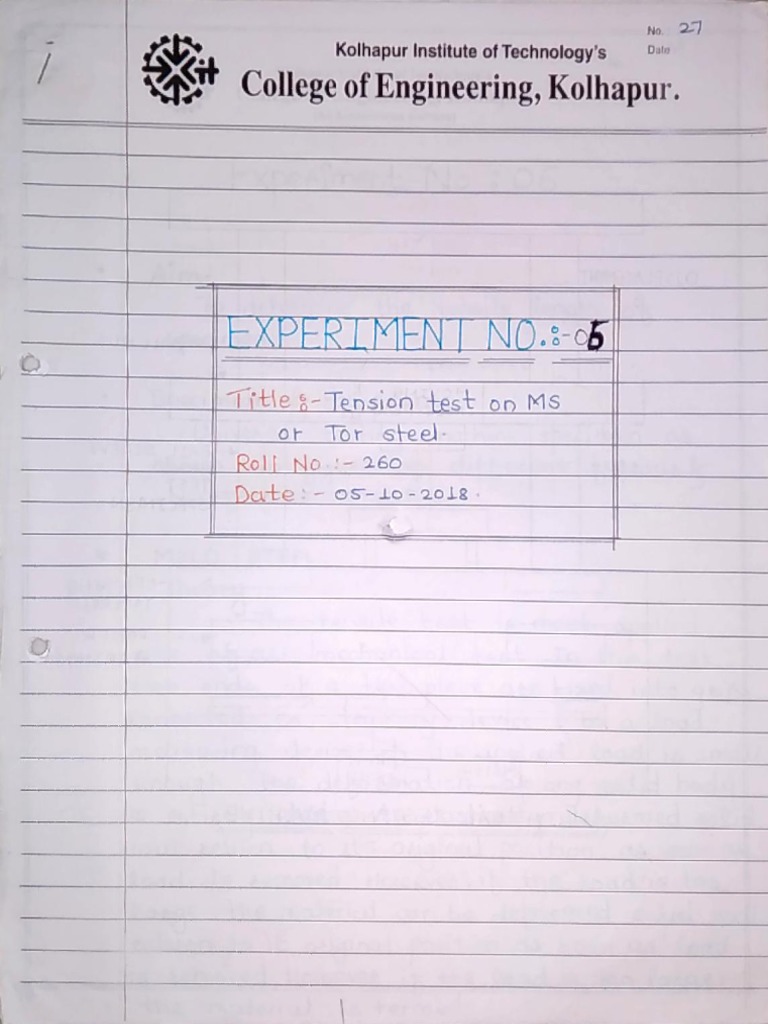 No. 27
Kolhapur Institute of Technology's
Date
College of Engineering, Kolhapur.
EXPERIMENT NO.:-05
Title :- Tension test on MS
or Tor steel.
Roll No :- 260
Date :- 05-10-2018.